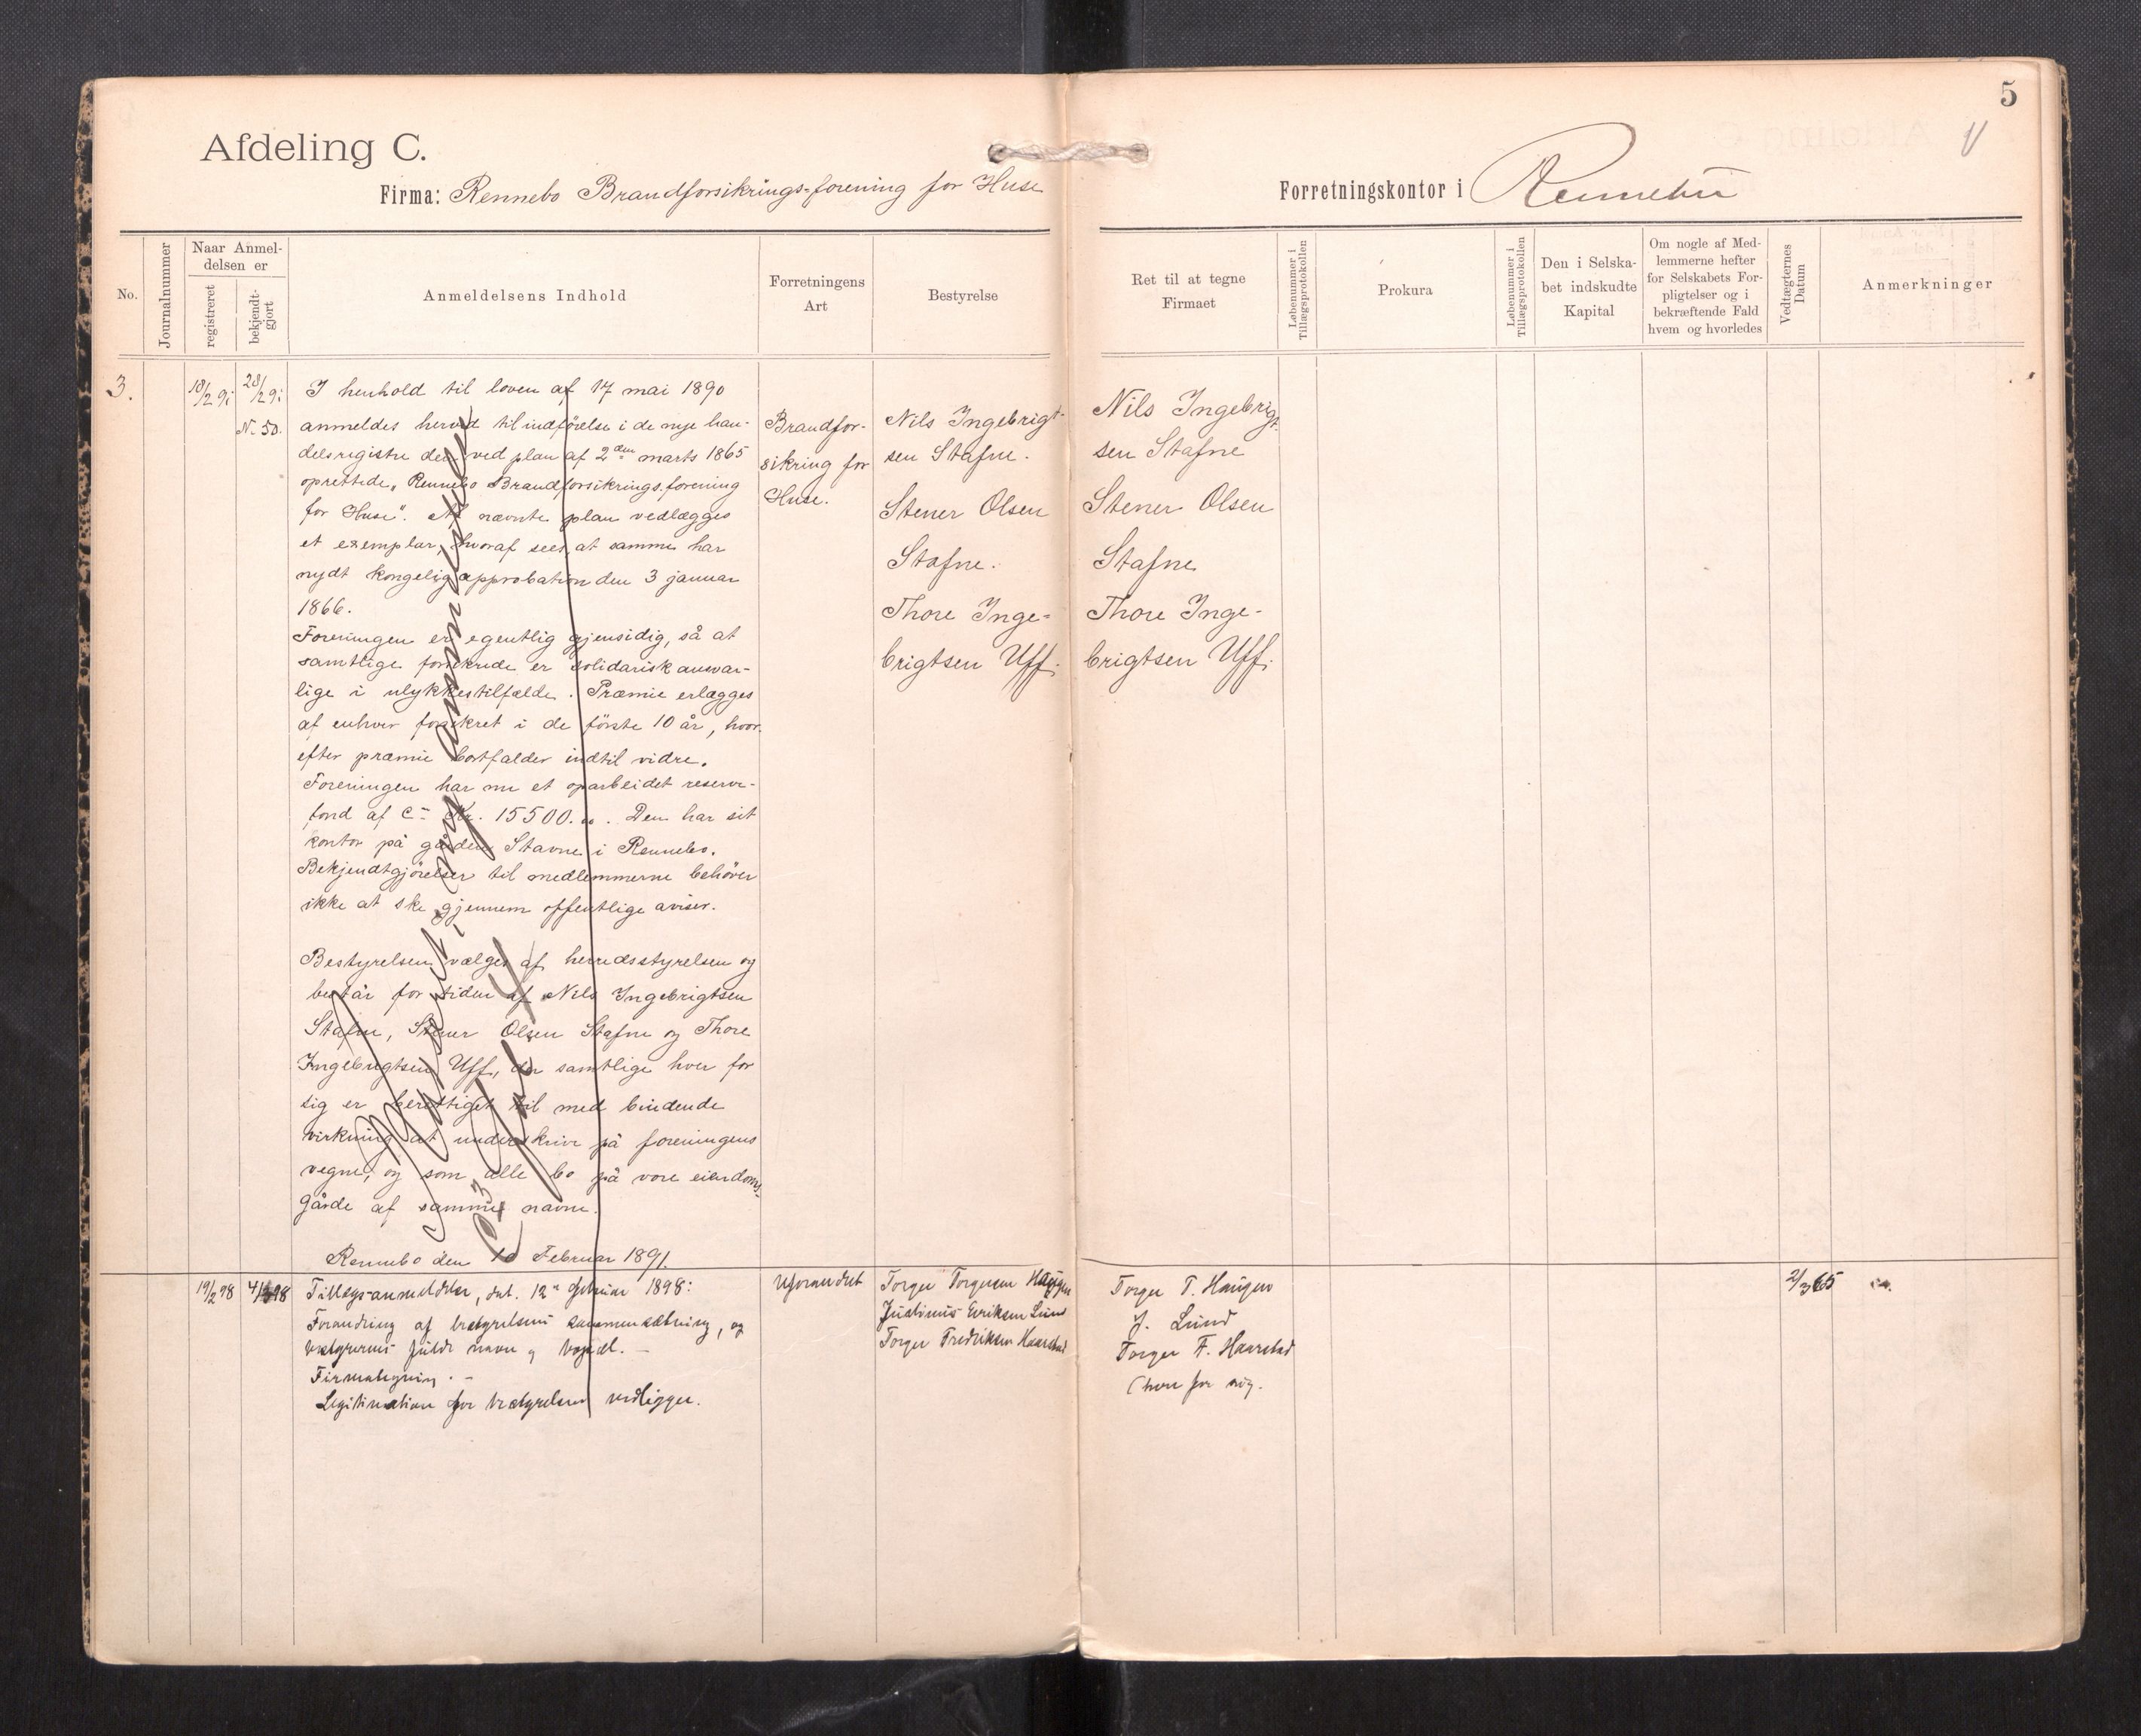 5
Afdeling C.
Firma: Rennebo Brandforsikrings-forening for Huse
Forretningskontor i Rennebu
No.
Journalnummer
Naar Anmel-
delsen er
registreret
bekjendt-
gjort
Anmeldelsens Indhold
Forretningens
Art
Bestyrelse
Ret til at tegne
Firmaet
Løbenummer i
Tillægsprotokollen
Prokura
Løbenummer i
Tillægsprotokollen
Den i Selska-
bet indskudte
Kapital
Om nogle af Med-
lemmerne hefter
for Selskabets For-
pligtelser og i
bekræftende Fald
hvem og hvorledes
Vedtægternes
Datum
Anmerkninger
3.
18/2 91
28/2 91
No 50.
I henhold til loven af 17 mai 1890
anmeldes herved til indførelse i de nye han-
delsregistre den ved plan af 2den marts 1865
oprettede „Rennebo Brandforsikrings.forening
for Huse". Af nævnte plan vedlægges
et exemplar, hvoraf sees, at samme har
nydt kongelig approbation den 3 januar
1866.
Foreningen er egentlig gjensidig, så at
samtlige forsikrede er solidarisk ansvar-
lige i ulykkestilfælde. Præmie erlægges
af enhver forsikret i de første 10 år, hvor-
efter præmie bortfalder indtil vidre.
Foreningen har nu et oparbeidet reserve-
fond af ca Kr. 15500.00. Den har sit
kontor på gården Stavne i Rennebo.
Bekjendtgjörelser til medlemmerne behöver
ikke at ske gjennem offentlige aviser.
Bestyrelsen vælges af herredsstyrelsen og
består for tiden af Nils Ingebrigtsen
Stafne, Stener Olsen Stafne og Thore
Ingebrigtsen Uff, der samtlige hver for
sig er berettiget til med bindende
virkning at underskrive på foreningens
vegne, og som alle bo på vore eiendoms-
gårde af samme navne.
Rennebo den 10 Februar 1891.
Brandfor-
sikring for
Huse.
Nils Ingebrigt-
sen Stafne.
Stener Olsen
Stafne.
Thore Inge-
brigtsen Uff.
Nils Ingebrigt-
sen Stafne
Stener Olsen
Stafne
Thore Inge-
brigtsen Uff.
19/2 98
4/3 98
Tillægsanmeldelse, dat. 12te Februar 1898:
Forandring af bestyrelsens sammensætning, og
bestyrernes fulde navn og bopæl. -
Firmategning. -
Legitimation for bestyrelsen vedligger.
Uforandret
Torger Torgersen Haugen
Justinus Eriksen Lund
Torger Fredriksen Haarstad
Torger T. Haugen
J. Lund
Torger F. Haarstad
(hver for sig.
2/3 65